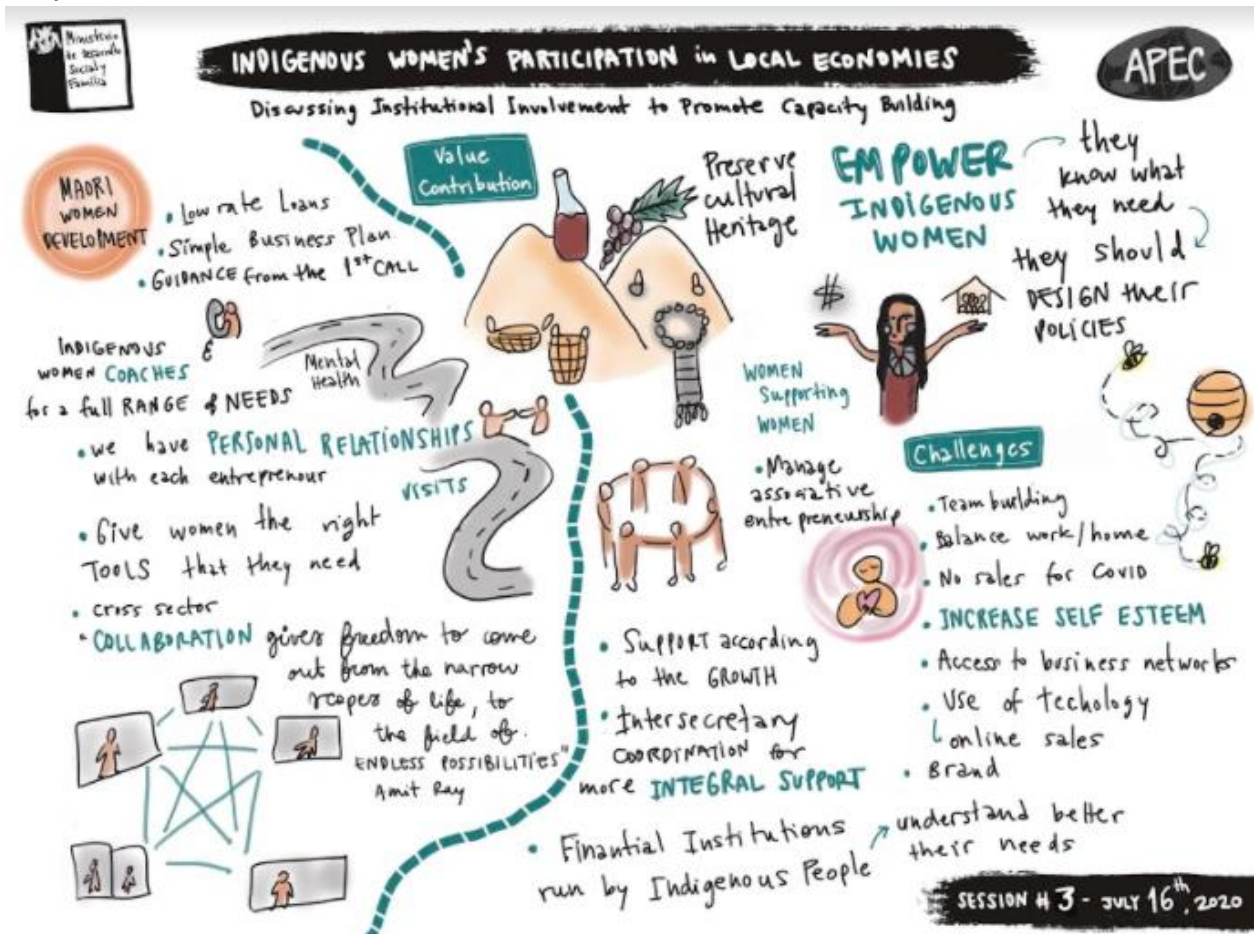 Ministerio
de Desarrollo
Social y
Familia
INDIGENOUS WOMEN'S PARTICIPATION in LOCAL ECONOMIES
Discussing Institutional Involvement to Promote Capacity Building
APEC
MAORI
WOMEN
DEVELOPMENT
• Low rate Loans
• Simple Business Plan
• GUIDANCE from the 1st CALL
INDIGENOUS
WOMEN COACHES
for a full RANGE of NEEDS
Mental
Health
• we have PERSONAL RELATIONSHIPS
with each entreprenour
VISITS
• Give women the right
TOOLS that they need
• cross sector
"COLLABORATION gives freedom to come
out from the narrow
scopes of life, to
the field of.
ENDLESS POSSIBILITIES"
Amit Ray
Value
Contribution
Preserve
cultural
Heritage
EMPOWER
INDIGENOUS
WOMEN
they
know what
they need
they should
DESIGN their
POLICIES
$
WOMEN
Supporting
WOMEN
• Manage
associative
entrepreneurship
• SUPPORT according
to the GROWTH
• Intersecretary
COORDINATION for
more INTEGRAL SUPPORT
• Finantial Institutions
run by Indigenous People
understand better
their needs
Challenges
• Team building
• Balance work/home
• No sales for COVID
• INCREASE SELF ESTEEM
• Access to business networks
• Use of Techology
online sales
• Brand
SESSION # 3 - JULY 16th, 2020